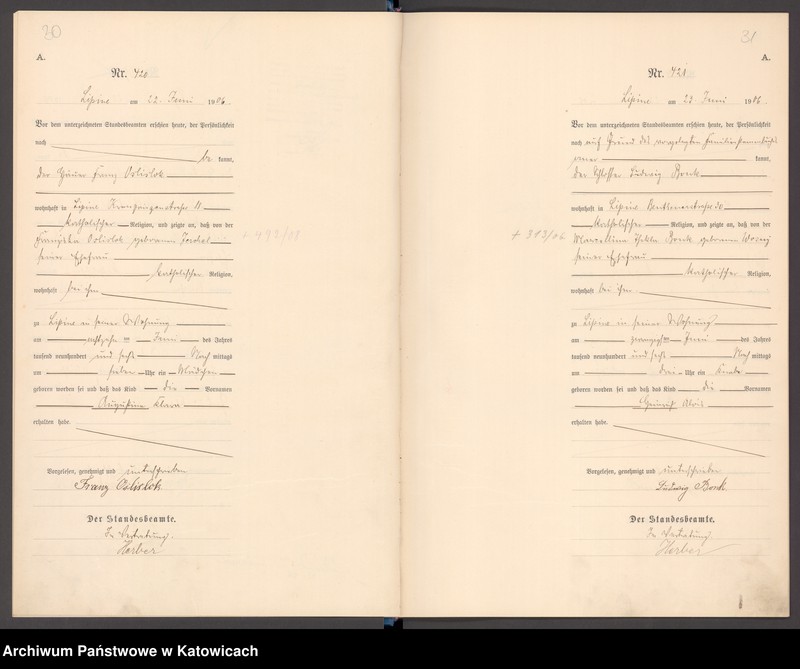 30
A.
Nr. 420
Lipine am 22. Juni 1906.
Vor dem unterzeichneten Standesbeamten erschien heute, der Persönlichkeit
nach be kannt,
der Häuer Franz
wohnhaft in Lipine 11
katholischer Religion, und zeigte an, daß von der
geborenen
seiner Ehefrau
katholischer Religion,
wohnhaft bei ihm
zu Lipine in seiner Wohnung
am Juni des Jahres
tausend neunhundert und sechs Nach mittags
um sieben Uhr ein Mädchen
geboren worden sei und daß das Kind die Vornamen
Klara
erhalten habe.
Vorgelesen, genehmigt und unterschrieben
Franz
Der Standesbeamte.
In Vertretung.
Herber
+ 492/08
31
A.
Nr. 421
Lipine am 23. Juni 1906.
Vor dem unterzeichneten Standesbeamten erschien heute, der Persönlichkeit
nach auf Grund des vorgelegten
kannt,
der Schlosser Ludwig Bonk
wohnhaft in Lipine
katholischer Religion, und zeigte an, daß von der
Bonk geborenen
seiner Ehefrau
katholischer Religion,
wohnhaft bei ihm
zu Lipine in seiner Wohnung
am Juni des Jahres
tausend neunhundert und sechs Nach mittags
um drei Uhr ein Knabe
geboren worden sei und daß das Kind die Vornamen
Heinrich Alois
erhalten habe.
Vorgelesen, genehmigt und unterschrieben
Ludwig Bonk
Der Standesbeamte.
In Vertretung
Herber
+ 313/06
Archiwum Państwowe w Katowicach